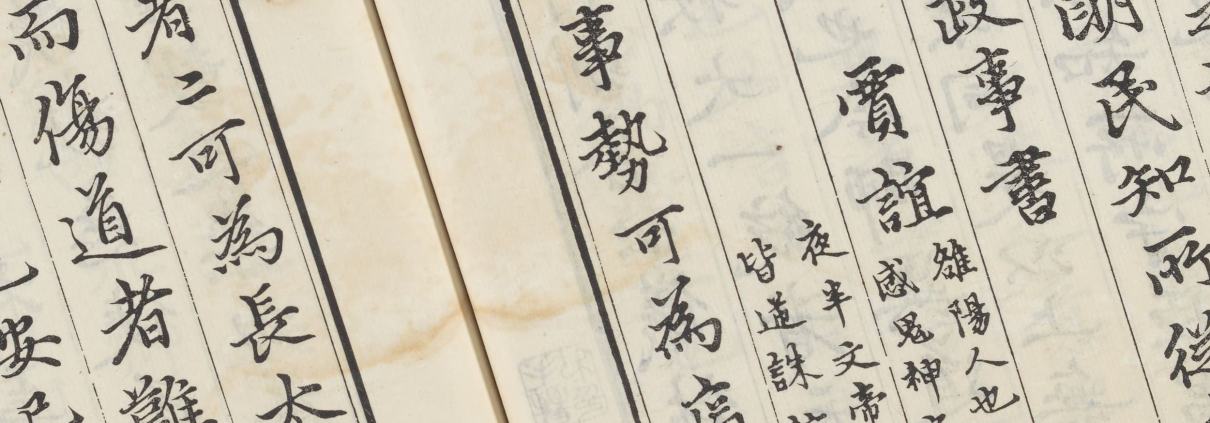 民知所從
政事書
賈誼
雒陽人也
感鬼神
夜半文帝
皆道誅
事勢可為
者二可為長太
而傷道者難
安